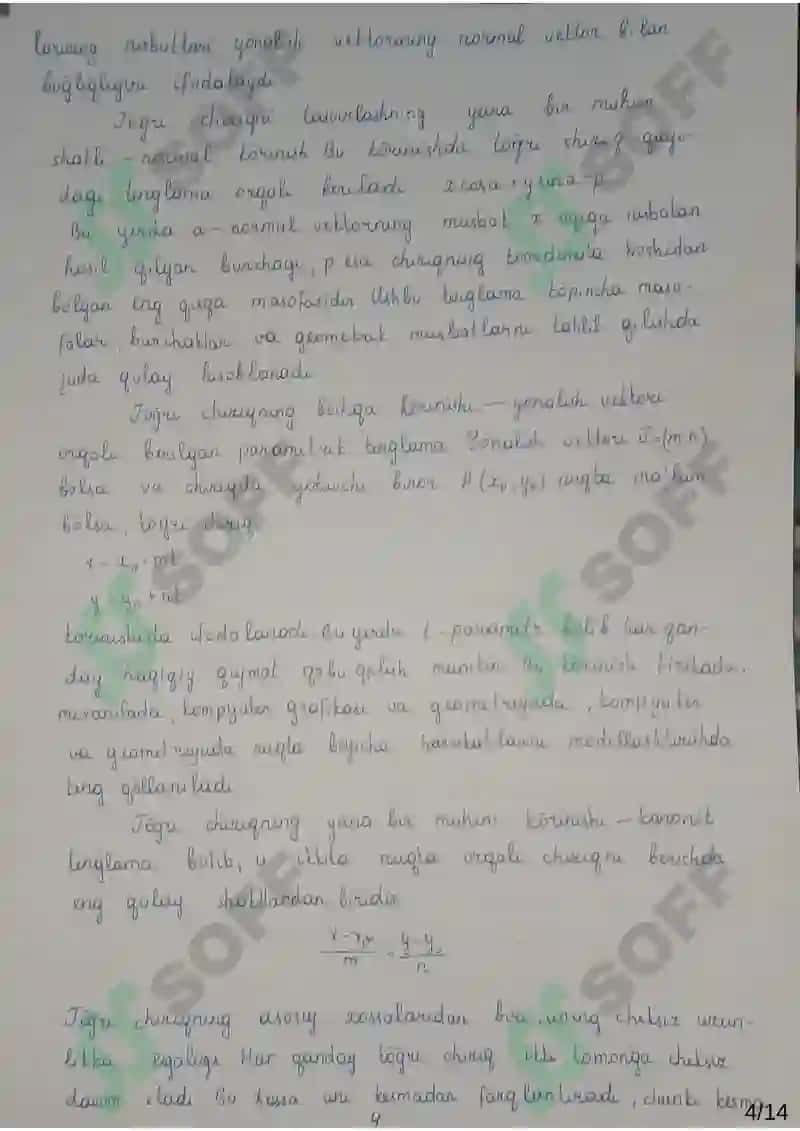 larining nisbatlari yönalish vektorining normal vektor bilan
bog'liqligini ifodalaydi
Togri chiziqni tasvirlashning yana bir muhim
shakli - normal körinish Bu körinishda toğri chiziq quyi-
dagi tenglama orqali beriladi xcosa+ysina=p
Bu yerda a - normal vektorning musbat x oqiga nisbatan
hosil qilgan burchagi, p esa chiziqning koordinata boshidan
bolgan eng qisqa masofasidir Ushbu tenglama köpincha maso-
falar, burchaklar va geometrik munosabatlarni tahlil qilishda
juda qulay hisoblanadi
Toğri chiziqning boshqa körinishi - yonalish vektori
orqali berilgan parametrik tenglama Yonalish vektori v=(m,n)
bolsa va chiziqda yotuvchi biror A(x₀,y₀) nuqta ma'lum
bolsa, toğri chiziq
x = x₀ + mt
y = y₀ + nt
körinishida ifodalanadi. Bu yerda t - parametr bölib har qan-
day haqiqiy qiymat qabul qilishi mumkin Bu körinish fizikada,
mexanikada, kompyuter grafikasi va geometriyada, kompyuter
va geometriyada nuqta böyicha harakatlarni modellashtirishda
keng qöllaniladi
Töğri chiziqning yana bir muhim körinishi - kanonik
tenglama bulib, u ikkita nuqta orqali chiziqni berishda
eng qulay shakllardan biridir
x-x₀/m = y-y₀/n
Töğri chiziqning asosiy xossalaridan biri uning cheksiz uzun-
likka egaligi Har qanday töğri chiziq ikki tomonga cheksiz
davom etadi Bu xossa uni kesmadan farqlantiradi, chunki kesma
4
4/14
SOFF
SOFF
SOFF
SOFF
SOFF
SOFF